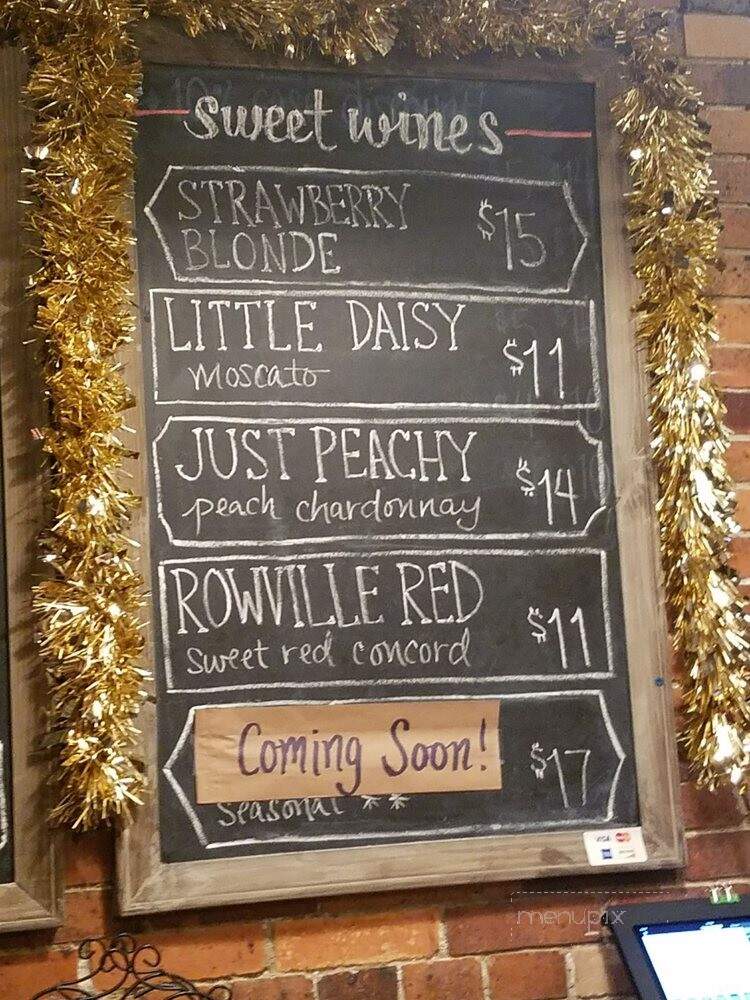 sweet wines
STRAWBERRY
BLONDE
$15
LITTLE DAISY
Moscato
$11
JUST PEACHY
peach chardonnay
$14
ROWVILLE RED
sweet red concord
$11
Coming Soon!
$17
seasonal **
VISA
menupix